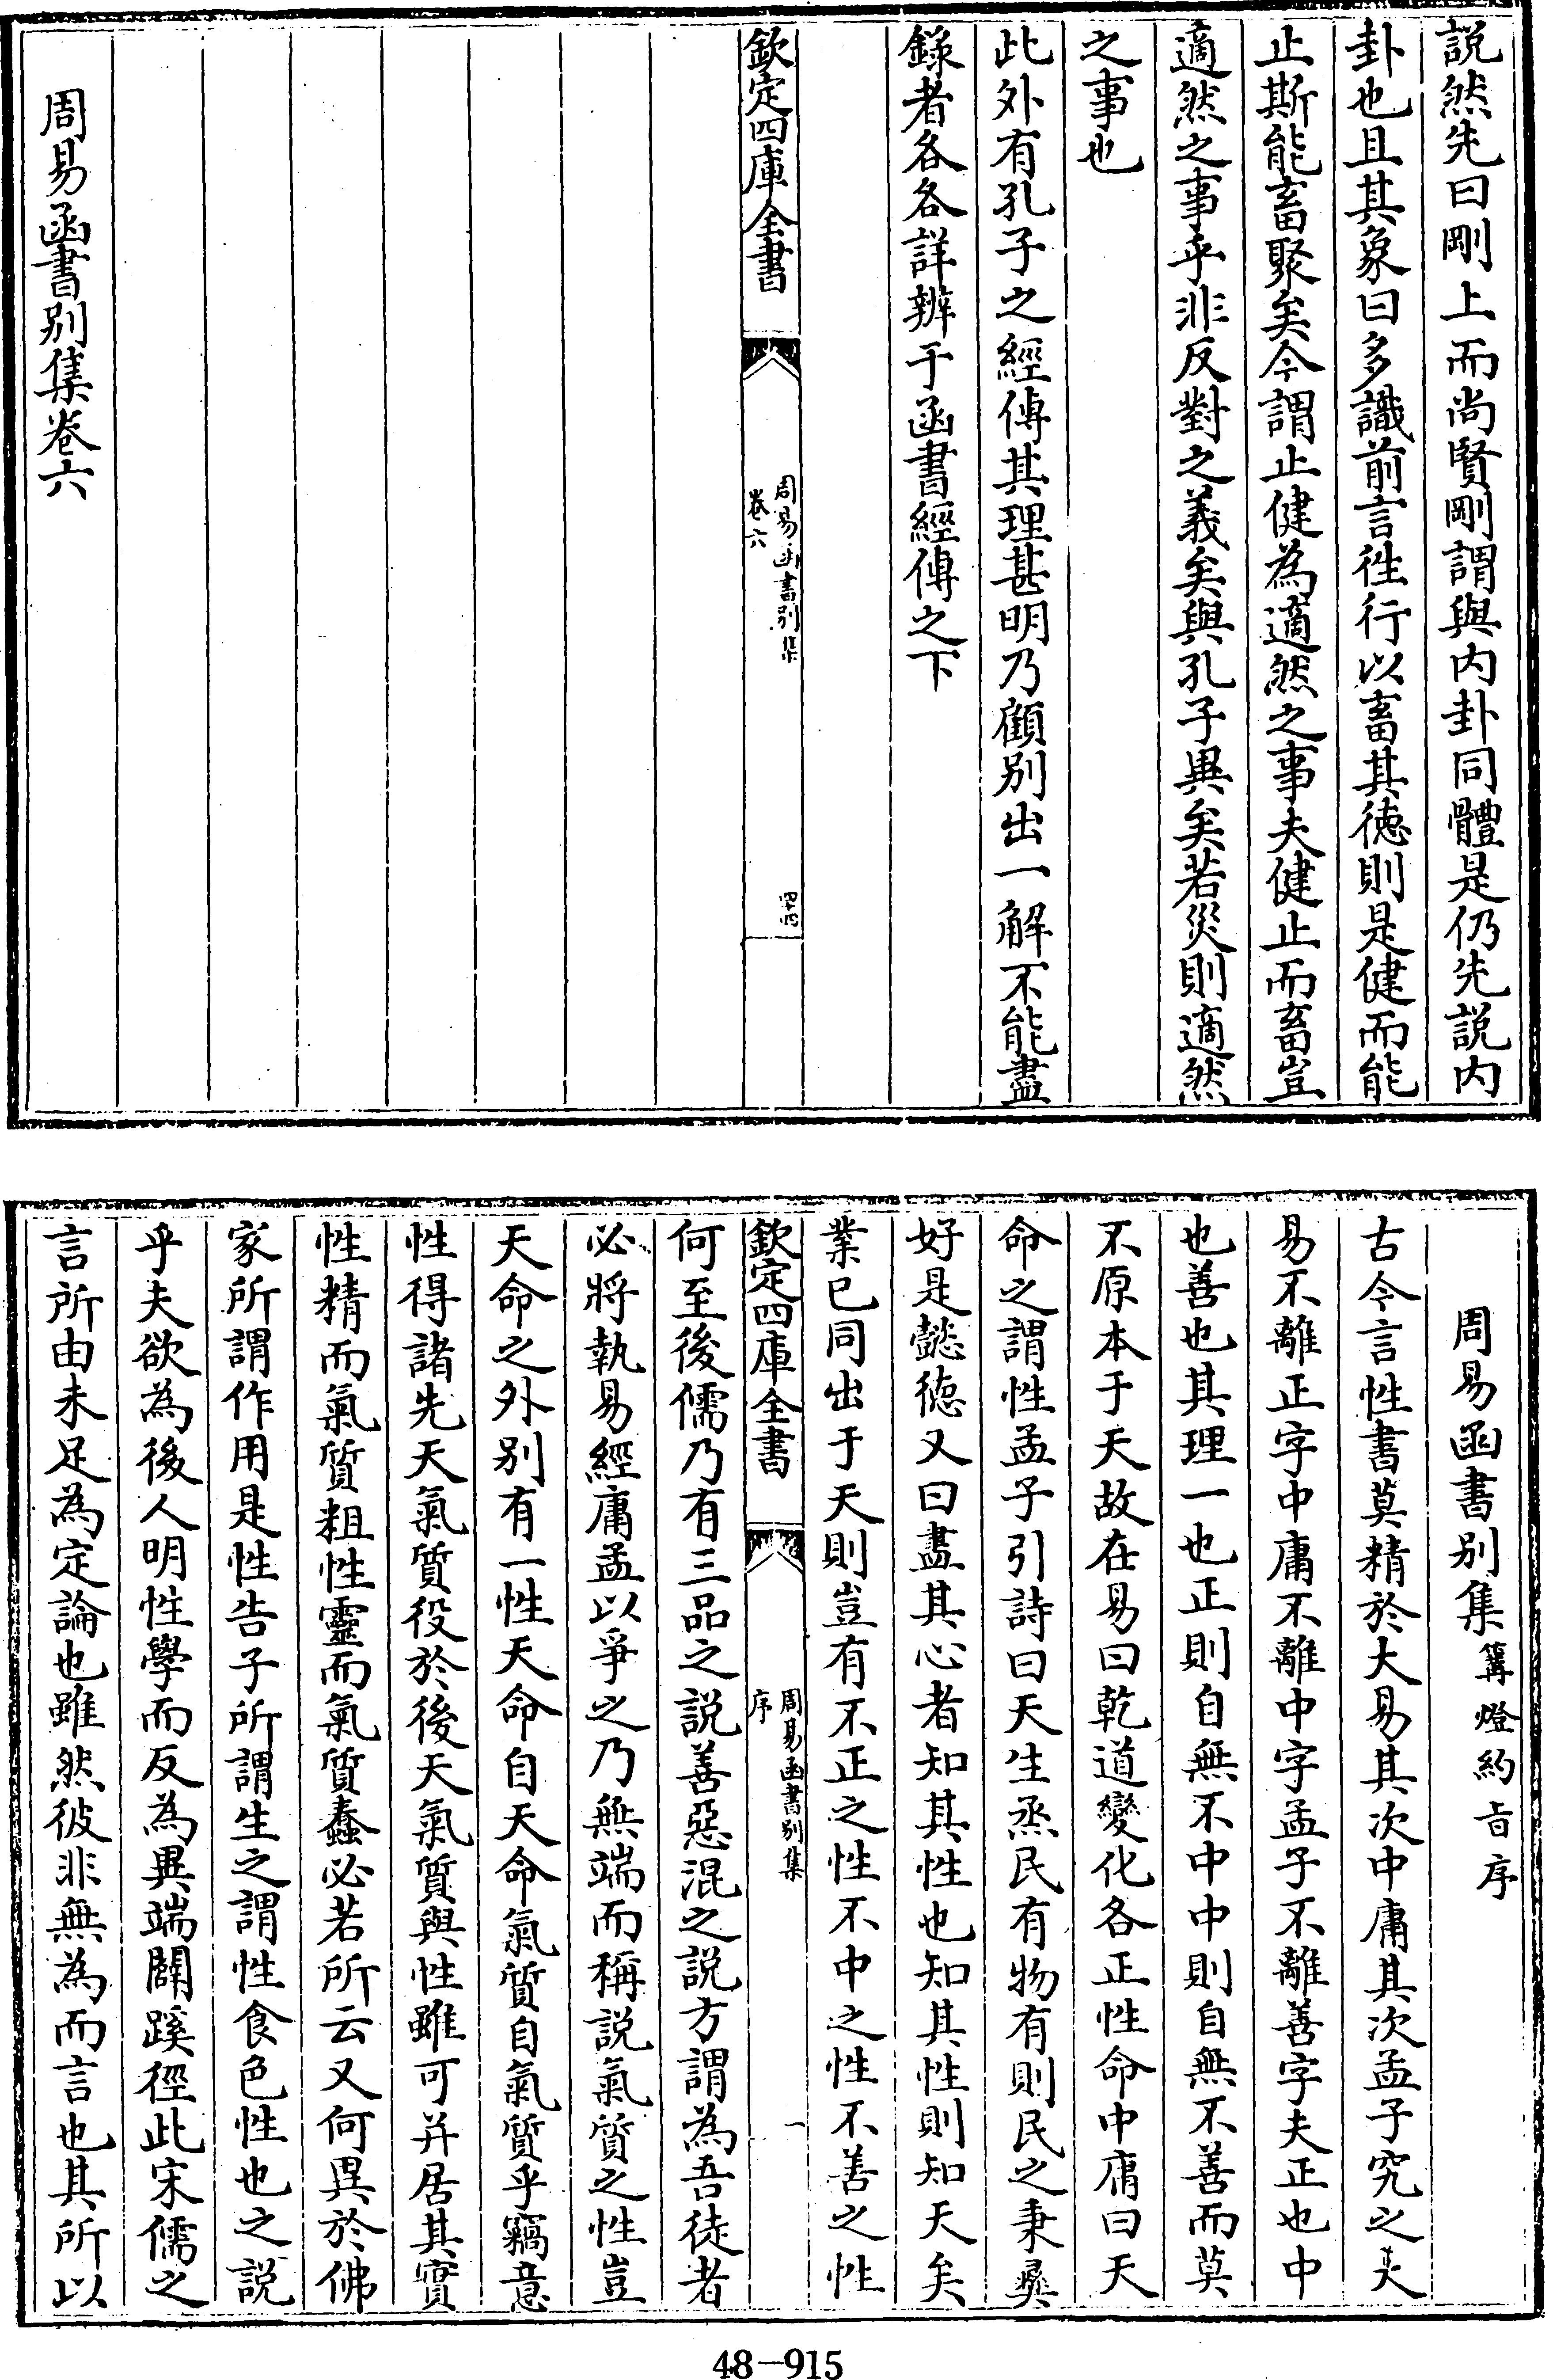 説然先曰剛上而尚賢剛謂與内卦同體是仍先説内
卦也且其象曰多識前言徃行以畜其徳則是健而能
止斯能畜聚矣今謂止健為適然之事夫健止而畜豈
適然之事乎非反對之義矣與孔子異矣若災則適然
之事也
此外有孔子之經傳其理甚明乃顧别出一解不能盡
錄者各各詳辨于函書經傳之下
欽定四庫全書
周易函書别集
卷六
四十四
周易函書别集卷六
周易函書别集篝燈約㫖序
古今言性書莫精於大易其次中庸其次孟子究之夫
易不離正字中庸不離中字孟子不離善字夫正也中
也善也其理一也正則自無不中中則自無不善而莫
不原本于天故在易曰乾道變化各正性命中庸曰天
命之謂性孟子引詩曰天生烝民有物有則民之秉彝
好是懿徳又曰盡其心者知其性也知其性則知天矣
業已同出于天則豈有不正之性不中之性不善之性
欽定四庫全書
周易函書别集
序
一
何至後儒乃有三品之説善惡混之説方謂為吾徒者
必將執易經庸孟以爭之乃無端而稱説氣質之性豈
天命之外别有一性天命自天命氣質自氣質乎竊意
性得諸先天氣質役於後天氣質與性雖可并居其實
性精而氣質粗性靈而氣質蠢必若所云又何異於佛
家所謂作用是性告子所謂生之謂性食色性也之説
乎夫欲為後人明性學而反為異端闢蹊徑此宋儒之
言所由未足為定論也雖然彼非無為而言也其所以
48-915